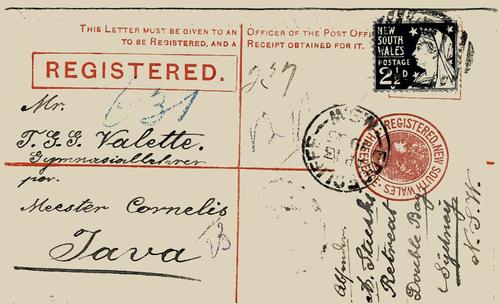 THIS LETTER MUST BE GIVEN TO AN OFFICER OF THE POST OFFI
TO BE REGISTERED, AND A RECEIPT OBTAINED FOR IT.
REGISTERED.
NEW
SOUTH
WALES
POSTAGE
2½D
631
957
Mr.
T. G. G. Valette.
Gymnasiallehrer
per.
Meester Cornelis
Java
REGISTERED, NEW SOUTH WALES
THREEPENCE
N.S.W
Retreat
Double Bay
Sydney
N. S. W.